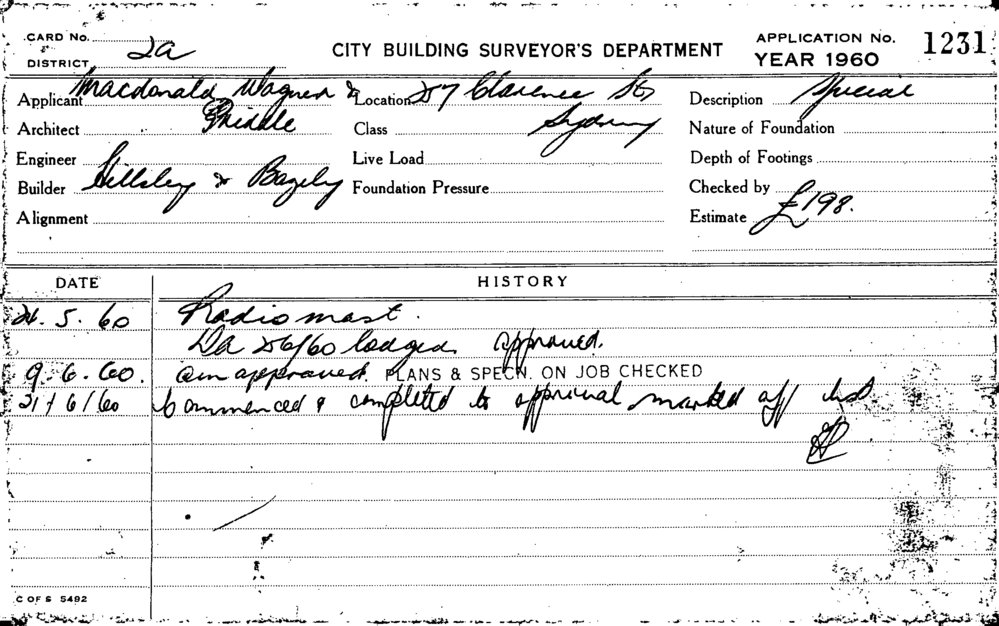 CARD No.
DISTRICT 2a
CITY BUILDING SURVEYOR'S DEPARTMENT
APPLICATION No. 1231
YEAR 1960
Applicant Macdonald Wagner &
Priddle
Location 257 Clarence St
Sydney
Description Special
Architect
Class
Nature of Foundation
Engineer
Live Load
Depth of Footings
Builder Hillsley & Bagely
Foundation Pressure
Checked by
Alignment
Estimate £198.
DATE HISTORY
24. 5. 60 Radio mast.
Da 256/60 lodged. approved.
9. 6. 60. approved. PLANS & SPECN. ON JOB CHECKED
21/6/60 Commenced & completed to approval marked off
C OF S 5492